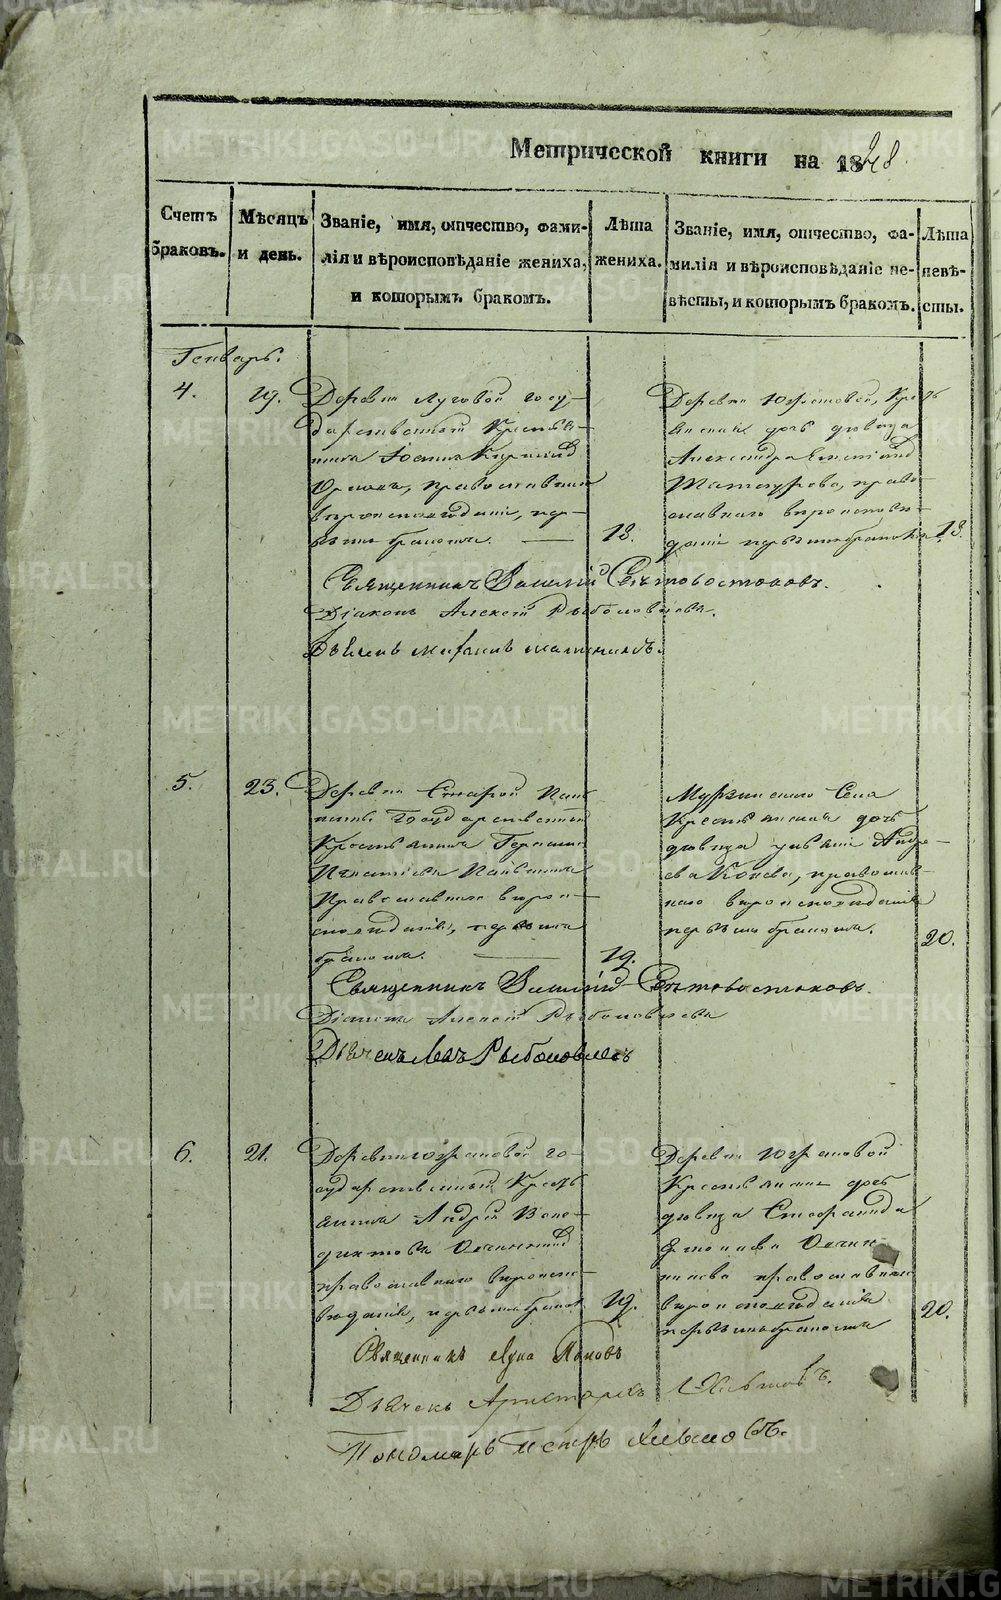 Метрической книги на 1848.
Счетъ браковъ.
Мѣсяцъ и день.
Званіе, имя, отчество, фами-
лія и вѣроисповѣданіе жениха,
и которымъ бракомъ.
Лѣта жениха.
Званіе, имя, отчество, фа-
милія и вѣроисповѣданіе не-
вѣсты, и которымъ бракомъ.
Лѣта невѣ-
сты.
Генварь.
4.
19.
Деревни Луговой госу-
дарственной Крестья-
нинъ
православнаго
вѣроисповѣданія, пер-
вымъ бракомъ.
18.
Деревни Южаковой, Кресть
янская дочь дѣвица
Александра
право-
славнаго вѣроисповѣ-
данія первымъ бракомъ.
18.
Священникъ Василій Свѣтовостоковъ.
Діаконъ Алексѣй Рыболовлевъ.
5.
23.
Деревни Старой Пань
шиной Государственный
Крестьянинъ Герасимъ
Игнатіевъ Паньшинъ
Православнаго вѣрои-
сповѣданія, первымъ
бракомъ.
19.
Мурзинскаго Села
Крестьянская дочь
дѣвица Андре-
ева православ-
наго вѣроисповѣданія
первымъ бракомъ.
20.
Священникъ Василій Свѣтовостоковъ.
Діаконъ Алексѣй Рыболовлевъ
Дьячекъ Левъ Рыболовлевъ
6.
21.
Деревни Южаковой го-
сударственный Кресть
янинъ Андрей Вене-
диктовъ Овчинниковъ
православнаго вѣроиспо-
вѣданія, первымъ бракомъ
19.
Деревни Южаковой
Крестьянская дочь
дѣвица Стефанида
Овчин-
никова православнаго
вѣроисповѣданія
первымъ бракомъ
20.
Священникъ Лука Поповъ
Дьячекъ Аристархъ
Пономарь Петръ
METRIKI.GASO-URAL.RU